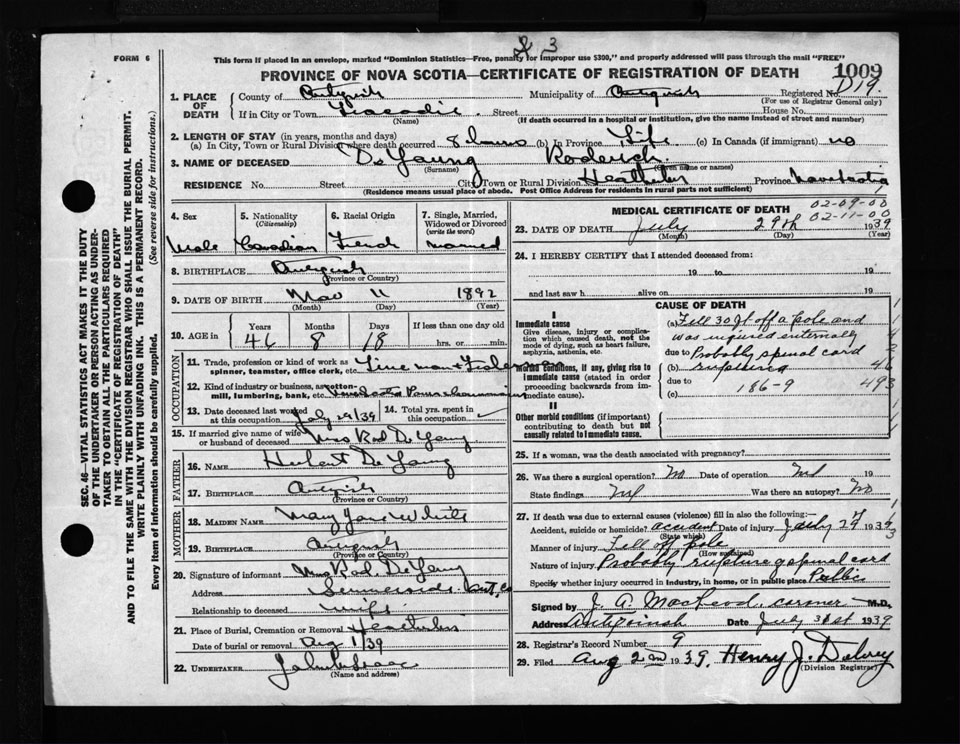 & 3
FORM 6
This form if placed in an envelope, marked "Dominion Statistics—Free, penalty for improper use $300," and properly addressed will pass through the mail "FREE"
PROVINCE OF NOVA SCOTIA—CERTIFICATE OF REGISTRATION OF DEATH
1009
1. PLACE OF DEATH
County of Antigonish Municipality of Antigonish Registered No. D19.
(For use of Registrar General only)
If in City or Town Tracadie Street House No.
(Name) (If death occurred in a hospital or institution, give the name instead of street and number)
2. LENGTH OF STAY (in years, months and days)
(a) In City, Town or Rural Division where death occurred 8 hours (b) In Province Life (c) In Canada (if immigrant) no
3. NAME OF DECEASED De Young Roderick
(Surname) (Given name or names)
RESIDENCE No. Street City, Town or Rural Division Heatherton Province Nova Scotia
(Residence means usual place of abode. Post Office Address for residents in rural parts not sufficient)
4. Sex
Male
5. Nationality
(Citizenship)
Canadian
6. Racial Origin
French
7. Single, Married, Widowed or Divorced
(write the word)
married
8. BIRTHPLACE Antigonish
(Province or Country)
9. DATE OF BIRTH Nov 11 1892
(Month) (Day) (Year)
10. AGE in
Years Months Days If less than one day old
46 8 18 hrs. or min.
OCCUPATION
11. Trade, profession or kind of work as spinner, teamster, office clerk, etc. Line man + Fisherman
12. Kind of industry or business, as cotton-mill, lumbering, bank, etc. Nova Scotia Power Commission
13. Date deceased last worked at this occupation July 29/39
14. Total yrs. spent in this occupation
15. If married give name of wife or husband of deceased Mrs Rod De Young
FATHER
16. NAME Hubert De Young
17. BIRTHPLACE Antigonish
(Province or Country)
MOTHER
18. MAIDEN NAME Mary Jane White
19. BIRTHPLACE Antigonish
(Province or Country)
20. Signature of informant Mrs Rod. De Young
Address Summerside Ant. Co
Relationship to deceased wife
21. Place of Burial, Cremation or Removal Heatherton
Date of burial or removal Aug 1/39
22. UNDERTAKER
(Name and address)
MEDICAL CERTIFICATE OF DEATH
02-09-00
02-11-00
23. DATE OF DEATH July 29th 1939
(Month) (Day) (Year)
24. I HEREBY CERTIFY that I attended deceased from:
19 to 19
and last saw h alive on 19
CAUSE OF DEATH
I
Immediate cause
Give disease, injury or complication which caused death, not the mode of dying, such as heart failure, asphyxia, asthenia, etc.
Morbid conditions, if any, giving rise to immediate cause (stated in order proceeding backwards from immediate cause).
II
Other morbid conditions (if important) contributing to death but not causally related to immediate cause.
(a) Fell 30 ft off a pole and
was injured internally
due to Probably spinal cord
(b) rupturing
due to 186-9
(c)
493
25. If a woman, was the death associated with pregnancy?
26. Was there a surgical operation? No Date of operation Nil 19
State findings Nil Was there an autopsy? No
27. If death was due to external causes (violence) fill in also the following:
Accident, suicide or homicide? accident Date of injury July 29 1939
(State which)
Manner of injury Fell off pole
(How sustained)
Nature of injury Probably rupture of spinal cord
Specify whether injury occurred in industry, in home, or in public place Public
Signed by J. A. MacLeod, coroner M.D.
Address Antigonish Date July 31st 1939
28. Registrar's Record Number 9
29. Filed Aug 2nd 1939. Henry J. Delorey
(Division Registrar)
SEC. 46—VITAL STATISTICS ACT MAKES IT THE DUTY
OF THE UNDERTAKER OR PERSON ACTING AS UNDER-
TAKER TO OBTAIN ALL THE PARTICULARS REQUIRED
IN THE "CERTIFICATE OF REGISTRATION OF DEATH"
AND TO FILE THE SAME WITH THE DIVISION REGISTRAR WHO SHALL ISSUE THE BURIAL PERMIT.
WRITE PLAINLY WITH UNFADING INK. THIS IS A PERMANENT RECORD.
Every item of information should be carefully supplied. (See reverse side for instructions.)